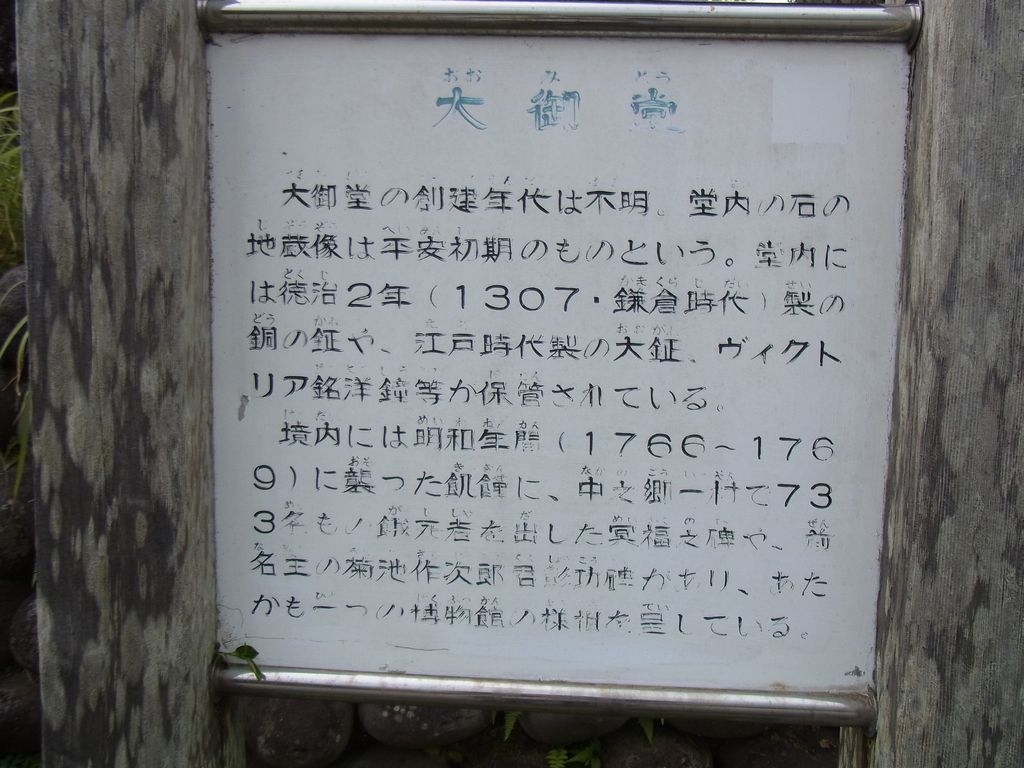 大御堂
大御堂の創建年代は不明。堂内の石の
地蔵像は平安初期のものという。堂内に
は徳治2年(1307・鎌倉時代)製の
銅の鉦や、江戸時代製の大鉦、ヴィクト
リア銘洋鐘等が保管されている。
境内には明和年間(1766~176
9)に襲った飢饉に、中之郷一村で73
3名もの餓死者を出した冥福之碑や、前
名主の菊池作次郎君彰功碑があり、あた
かも一つの博物館の様相を呈している。